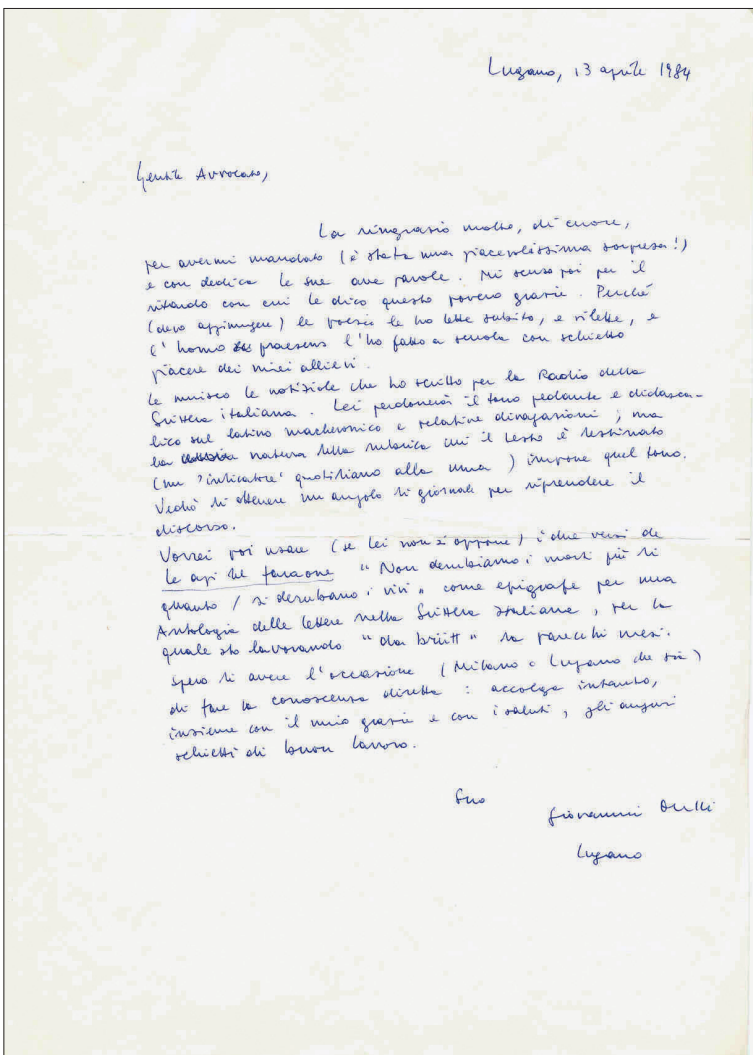 Lugano, 13 aprile 1984
Gentile Avvocato,
La ringrazio molto, di cuore,
per avermi mandato (è stata una piacevolissima sorpresa!)
e con dedica le sue ave parole. Mi scuso poi per il
ritardo con cui le dico questo povero grazie. Perché
(devo aggiungere) le poesie le ho lette subito, e rilette, e
l'homo praesens l'ho fatto a scuola con schietto
piacere dei miei allievi.
Le unisco le notiziole che ho scritto per la Radio della
Svizzera italiana. Lei perdonerà il tono pedante e didasca-
lico sul latino maccheronico e relative divagazioni; ma
la natura della rubrica cui il testo è destinato
(un 'indicatore' quotidiano alla una) impone quel tono.
Vedrò di ottenere un angolo di giornale per riprendere il
discorso.
Vorrei poi usare (se Lei non si oppone) i due versi de
Le api del faraone "Non derubiamo i morti più di
quanto / si derubano i vivi" come epigrafe per una
Antologia delle lettere nella Svizzera Italiana, per la
quale sto lavorando "da brütt" da parecchi mesi.
Spero di avere l'occasione (Milano o Lugano che sia)
di fare la conoscenza diretta: accolga intanto,
insieme con il mio grazie e con i saluti, gli auguri
schietti di buon lavoro.
Suo
Giovanni Orelli
Lugano